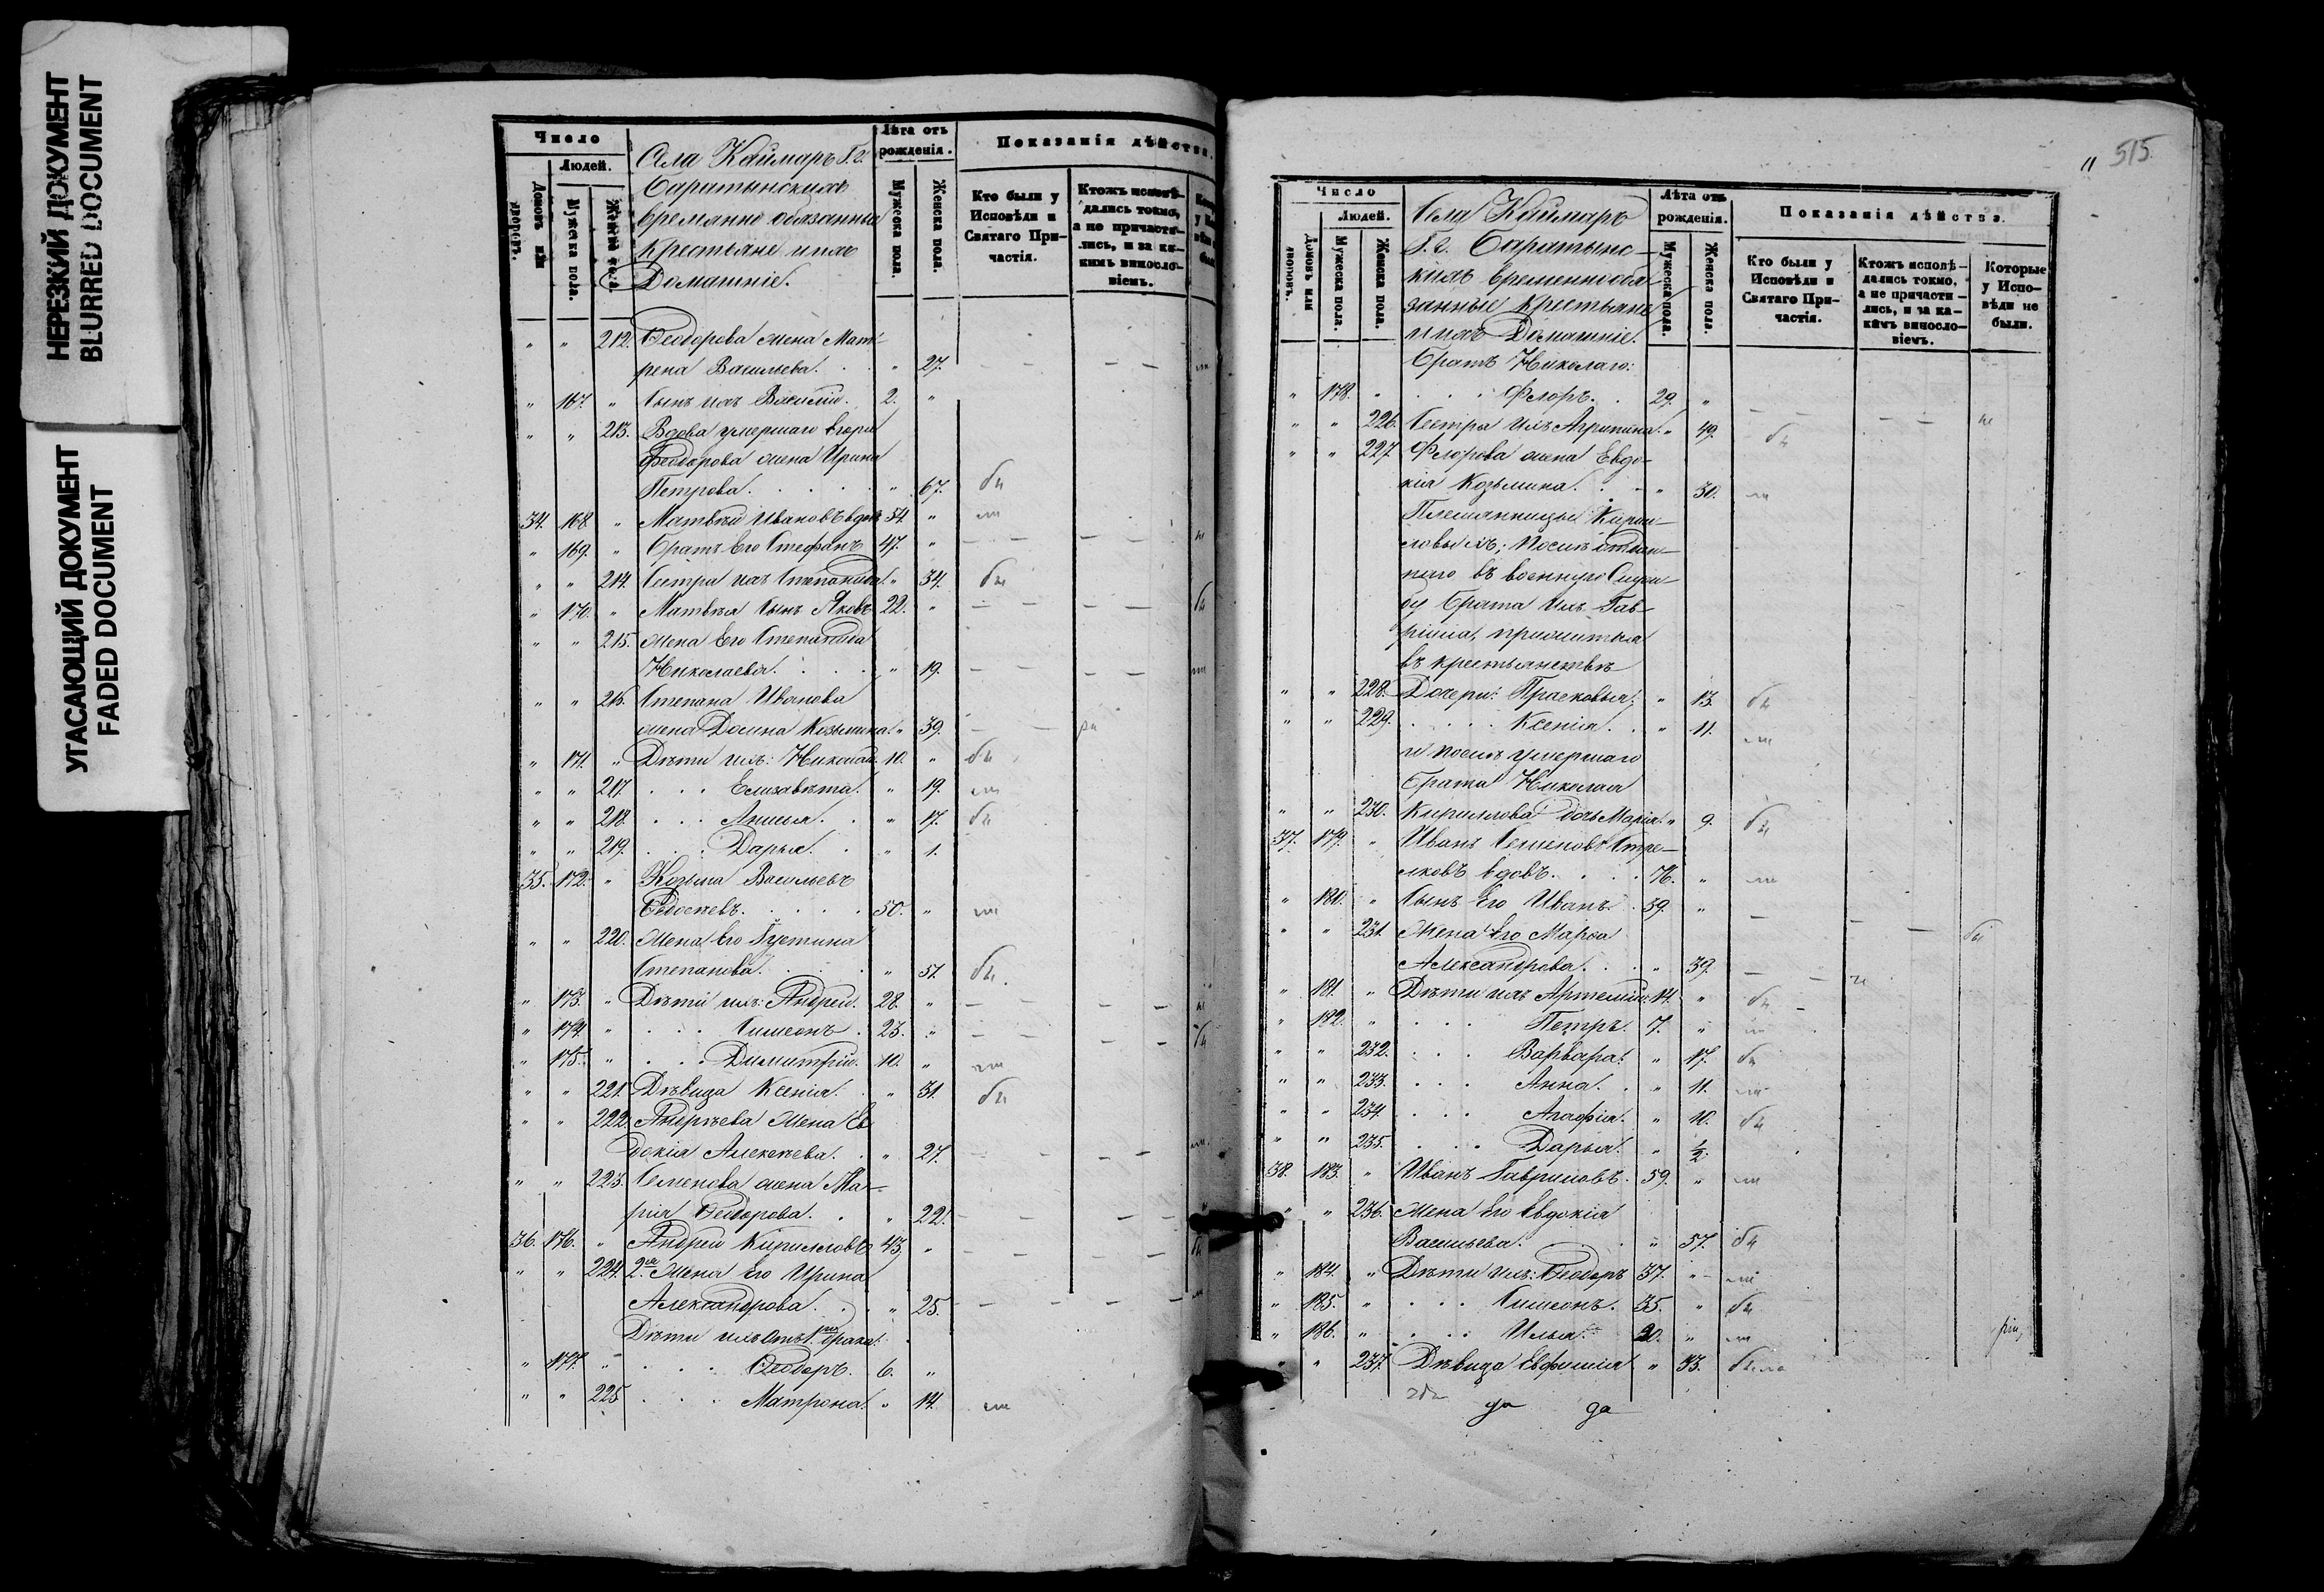 НЕРЕЗКИЙ ДОКУМЕНТ
BLURRED DOCUMENT
УГАСАЮЩИЙ ДОКУМЕНТ
FADED DOCUMENT
Число
Людей.
Домовъ или дворовъ.
Мужеска пола.
Женска пола.
Села Каймаръ Г.г.
Баратынскихъ
временно обязанные
крестьяне и ихъ
Домашніе.
Лѣта отъ рожденія.
Мужеска пола.
Женска пола.
Показанія дѣйства.
Кто были у Исповѣди и Святаго Причастія.
Ктожъ исповѣдались токмо, а не причастились, и за какимъ винословіемъ.
" " 212. Ѳеодорова жена Мат-
рена Васильева. " 27.
" 167. " Сынъ ихъ Василій. 2. "
" " 213. Вдова умершаго Егора
Феодорова жена Ирина
Петрова. " 67. бы
34. 168. " Матвѣй Ивановъ вдовъ 54. "
" 169. " Братъ Его Стефанъ 47. "
" " 214. Сестра ихъ Степанида. " 34. бы
" 170. " Матвѣя Сынъ Яковъ 22. "
" " 215. Жена Его Степанида
Николаева. " 19.
" " 216. Степана Иванова
жена Домна Козьмина. " 39.
" 171. " Дѣти ихъ: Николай. 10. " бы
" " 217. Елизавѣта. " 19.
" " 218. Анисья. " 17. бы
" " 219. Дарья. " 1.
35. 172. " Козьма Васильевъ
Ѳедосѣевъ. 50. "
" " 220. Жена Его Густина
Степанова. " 51. бы
" 173. " Дѣти ихъ: Андрей. 28. "
" 174. " Симеонъ. 23. "
" 175. " Димитрій. 10. "
" " 221. Дѣвица Ксенія. " 31. бы
" " 222. Андрѣева Жена Ев-
докія Алексѣева. " 27.
" " 223. Семенова жена Ма-
рія Ѳеодорова. " 22.
36. 176. " Андрей Кирилловъ 43. "
" " 224. 2я Жена Его Ирина
Александрова. " 25.
Дѣти ихъ отъ 1го брака:
" 177. " Ѳеодоръ. 6. "
" " 225. Матрона. " 14.
" 515.
Число
Людей.
Домовъ или дворовъ.
Мужеска пола.
Женска пола.
Села Каймаръ
Г.г. Баратынс-
кихъ временнообя-
занные Крестьяне
и ихъ Домашніе.
Лѣта отъ рожденія.
Мужеска пола.
Женска пола.
Показанія дѣйства.
Кто были у Исповѣди и Святаго Причастія.
Ктожъ исповѣдались токмо, а не причастились, и за какимъ винословіемъ.
Которые у Исповѣди не были.
Братъ Николаю:
" 178. " Флоръ. 29. "
" " 226. Сестра ихъ Агрипина. " 49. бы
" " 227. Флорова жена Евдо-
кія Козьмина. " 30.
Племянницы Кирил-
ловымъ; Послѣ отдан-
наго въ военную Служ-
бу Брата ихъ Гав-
ріила, прижитыя
въ крестьянствѣ
" " 228. Дочери: Прасковья; " 13. бы
" " 229. Ксенія. " 11.
и послѣ умершаго
Брата Николая
" " 230. Кириллова дочь Марія. " 9. бы
37. 179. " Иванъ Семеновъ Стре-
лковъ вдовъ. 76. "
" 180. " Сынъ Его Иванъ. 39. "
" " 231. Жена Его Марѳа
Александрова. " 39.
" 181. " Дѣти ихъ Артемій. 14. " бы
" 182. " Петръ. 7. "
" " 232. Варвара. " 17. бы
" " 233. Анна. " 11.
" " 234. Агафія. " 10. бы
" " 235. Дарья. " ½.
38. 183. " Иванъ Гавриловъ. 59. "
" " 236. Жена Его Евдокія
Васильева. " 57. бы
" 184. " Дѣти ихъ: Ѳеодоръ 37. "
" 185. " Симеонъ. 35. " бы
" 186. " Илья. 20. "
" " 237. Дѣвица Евфимія " 33. была